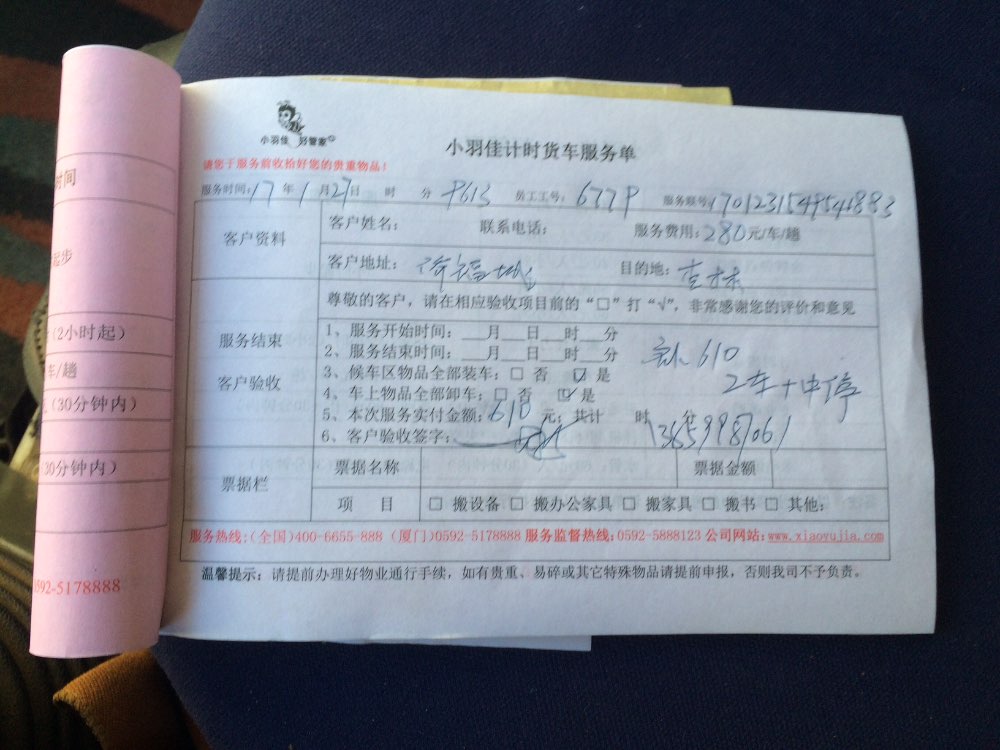 小羽佳 好管家
小羽佳计时货车服务单
请您于服务前收拾好您的贵重物品!
服务时间:17年1月27日 时 分 员工工号: 服务账号:
客户资料
客户姓名: 联系电话: 服务费用:280元/车/趟
客户地址: 目的地:
尊敬的客户,请在相应验收项目前的“□”打“√”,非常感谢您的评价和意见
服务结束
客户验收
1、服务开始时间:___月___日___时___分
2、服务结束时间:___月___日___时___分
3、候车区物品全部装车:□ 否 ☑ 是
4、车上物品全部卸车:□ 否 ☑ 是
5、本次服务实付金额:610元;共计 时 分
6、客户验收签字:
610
2车+中停
13659987061
票据栏
票据名称 票据金额
项 目 □ 搬设备 □ 搬办公家具 □ 搬家具 □ 搬书 □ 其他:
服务热线:(全国)400-6655-888 (厦门)0592-5178888 服务监督热线:0592-5888123 公司网站:www.xiaoyujia.com
温馨提示:请提前办理好物业通行手续,如有贵重、易碎或其它特殊物品请提前申报,否则我司不予负责。
时间
起步
(2小时起)
车/趟
(30分钟内)
30分钟内)
0592-5178888